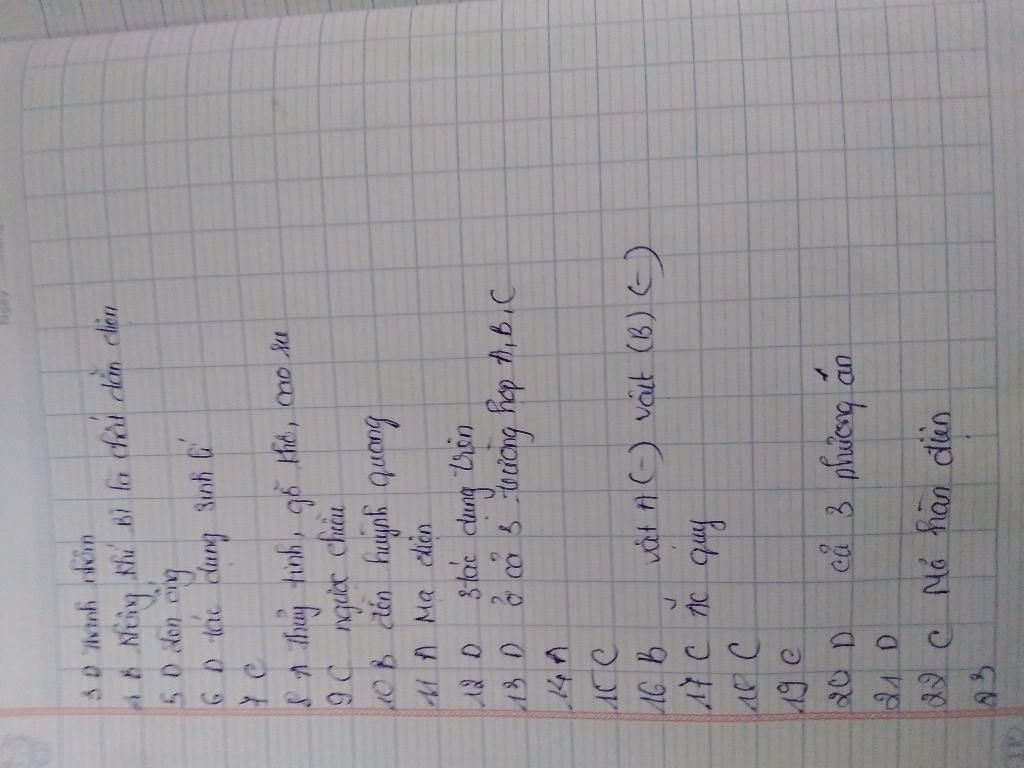 3 D Thanh nhôm
4 B Không khí vì là chất dẫn điện
5 D đèn ống
6 D tác dụng sinh lí
7 C
8 A Thủy tinh, gỗ khô, cao su
9 C ngược chiều
10 B đèn huỳnh quang
11 A Mạ điện
12 D 3 tác dụng trên
13 D ở cả 3 trường hợp A, B, C
14 A
15 C
16 B vật A (-) vật (B) (-)
17 C Ắc quy
18 C
19 C
20 D cả 3 phương án
21 D
22 C Mỏ hàn điện
23